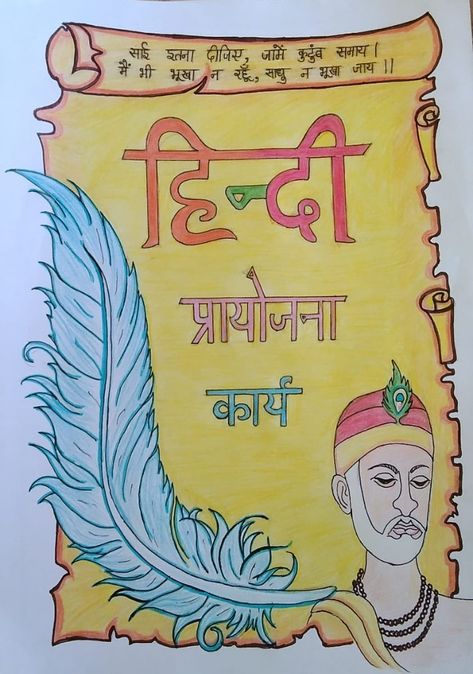 साई इतना दीजिए, जामें कुटुंब समाय।
मैं भी भूखा न रहूँ, साधु न भूखा जाय।।
हिन्दी
प्रायोजना
कार्य